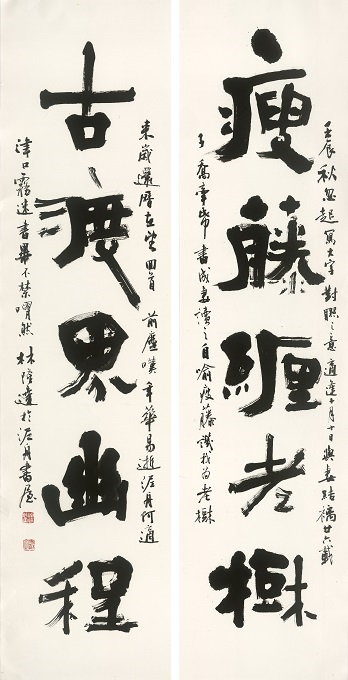 壬辰秋忽起寫大字對聯之意適逢十月十日與妻結褵廿六載
瘦藤纏老樹
書成妻讀之自喻瘦藤譏我為老樹
來歲還曆在望回首前塵嘆年華易逝
古渡界幽程
津口霧迷書畢不禁喟然林隆達於泥月書屋